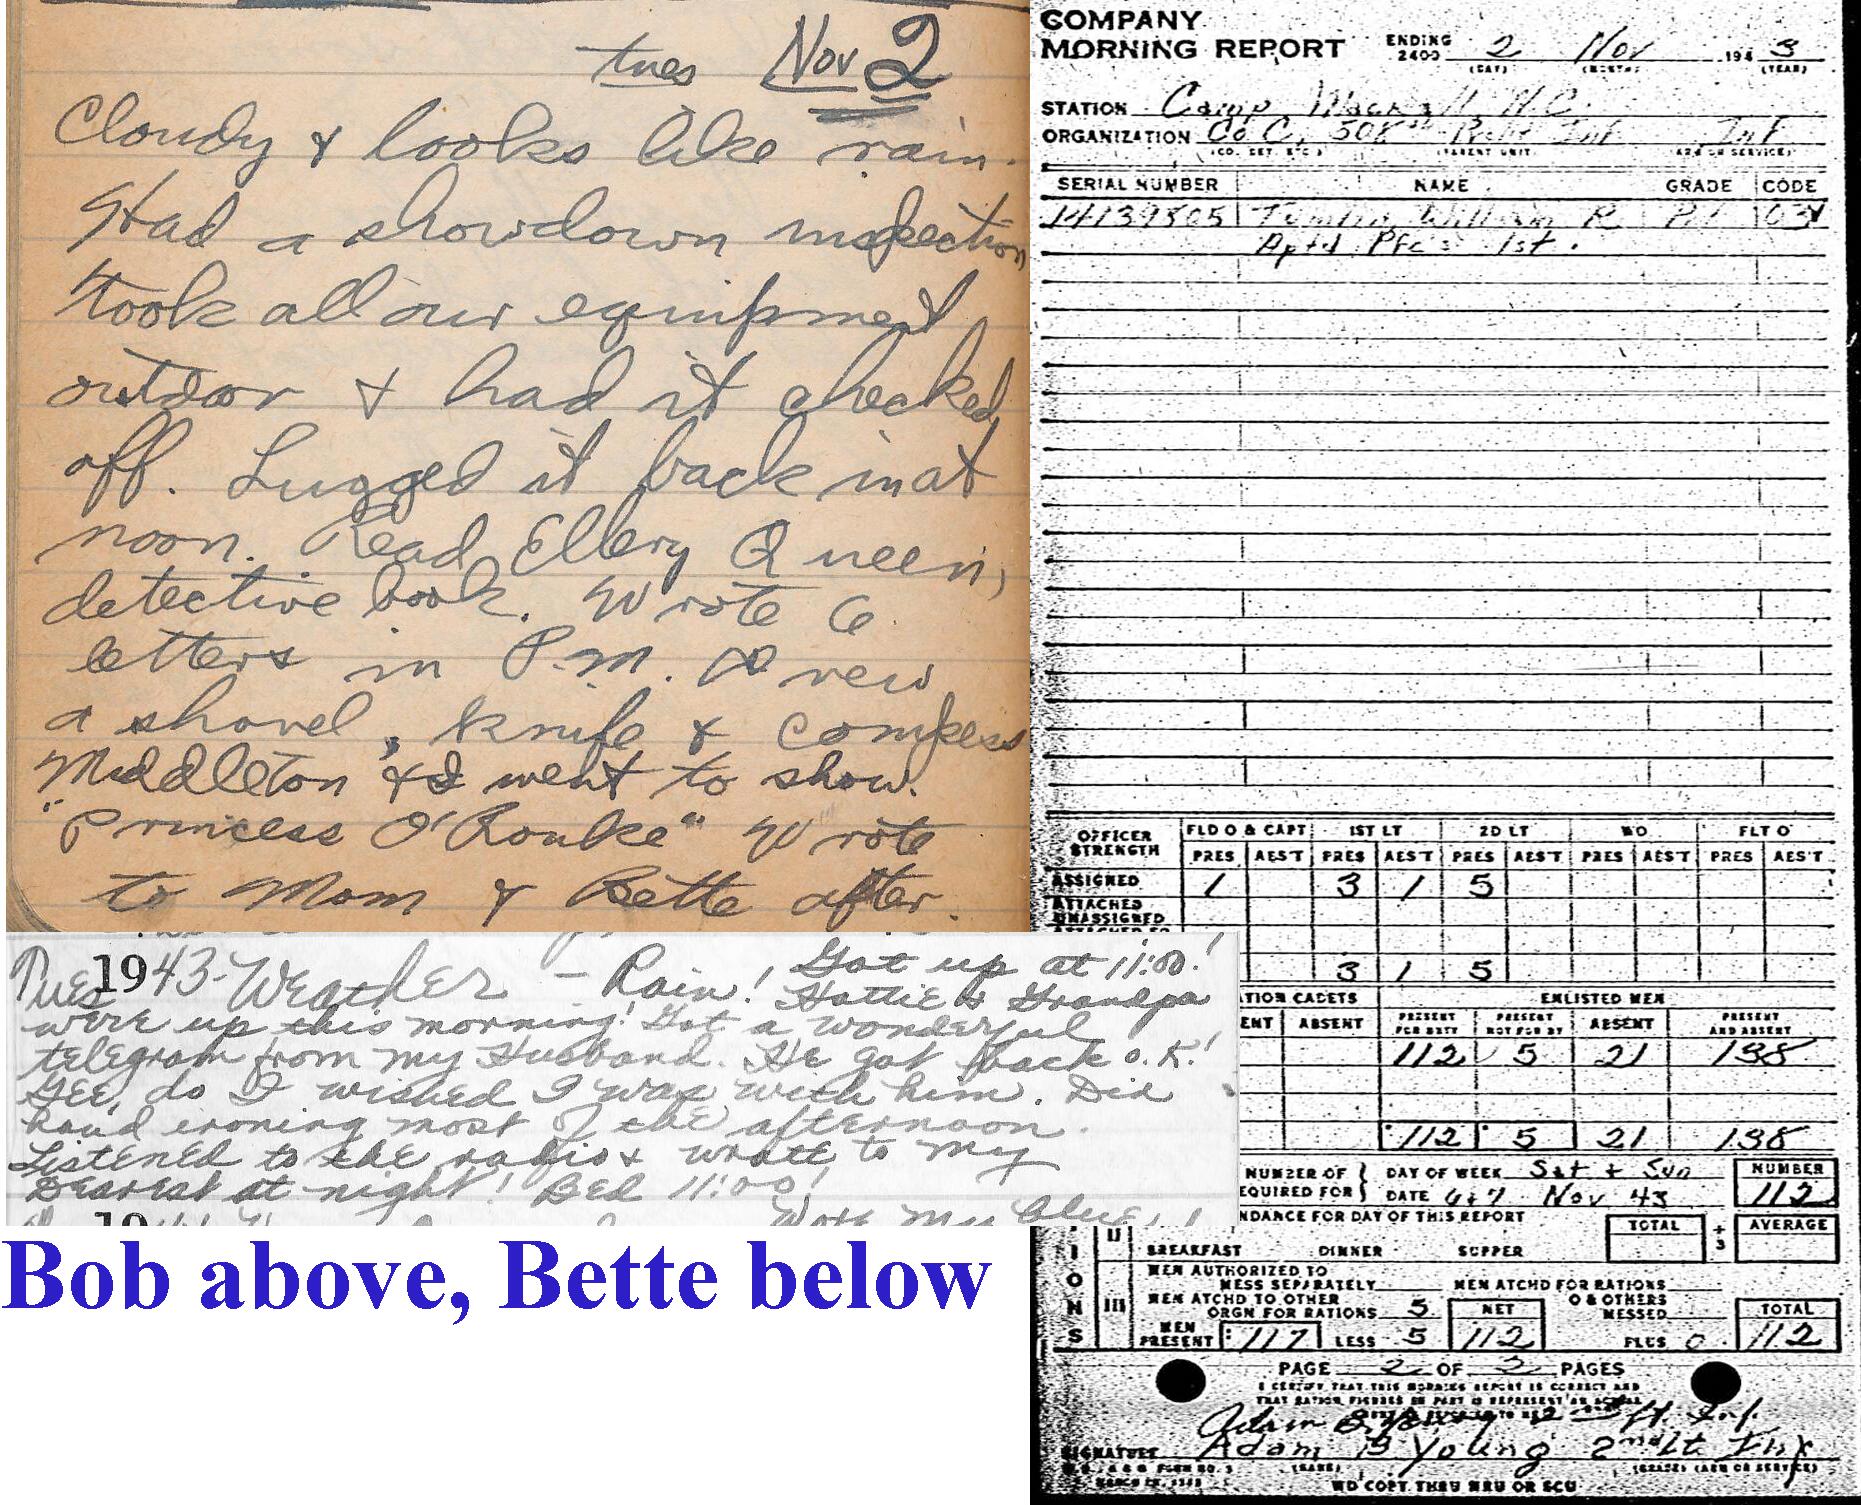 tues Nov 2
Cloudy & looks like rain.
Had a showdown inspection
took all our equipment
outdoor & had it checked
off. Lugged it back in at
noon. Read Ellery Queen,
detective book. Wrote 6
letters in P.M. Drew
a shovel, knife & compass
Middleton & I went to show.
"Princess O'Rouke" Wrote
to Mom & Bette after.
Tues 1943-Weather - Rain! Got up at 11:00!
Hattie & Grandpa
were up this morning! Got a wonderful
telegram from my Husband. He got back O.K.!
Gee, do I wished I was with him. Did
hand ironing most of the afternoon.
Listened to the radio & wrote to my
Dearest at night! Bed 11:00!
19
Wore my blue
Bob above, Bette below
COMPANY
MORNING REPORT ENDING 2400 2 Nov 1943
(DAY) (MONTH) (YEAR)
STATION Camp Mackall N.C.
ORGANIZATION Co C, 508th Prcht Inf Inf
(CO. DET. ETC.) PARENT UNIT (ARM OR SERVICE)
SERIAL NUMBER NAME GRADE CODE
14139305 William R
Aptd Pfc 1st.
OFFICER STRENGTH FLD O & CAPT 1ST LT 2D LT WO FLT O
PRES ABS'T PRES ABS'T PRES ABS'T PRES ABS'T PRES ABS'T
ASSIGNED 1 3 1 5
ATTACHED UNASSIGNED
3 1 5
TION CADETS ENLISTED MEN
ENT ABSENT PRESENT FOR DUTY PRESENT NOT FOR DY ABSENT PRESENT AND ABSENT
112 5 21 138
112 5 21 138
NUMBER OF DAY OF WEEK Sat & Sun NUMBER
EQUIRED FOR DATE 6&7 Nov 43 112
NDANCE FOR DAY OF THIS REPORT TOTAL ÷ 3 AVERAGE
II BREAKFAST DINNER SUPPER
MEN AUTHORIZED TO MESS SEPARATELY MEN ATCHD FOR RATIONS
III MEN ATCHD TO OTHER ORGN FOR RATIONS 5 NET O & OTHERS MESSED TOTAL
MEN PRESENT 117 LESS 5 112 PLUS 0 112
PAGE 2 OF 2 PAGES
I CERTIFY THAT THIS MORNING REPORT IS CORRECT AND
THAT RATION FIGURES IN PART
Adam B Young 2nd Lt. Inf.
SIGNATURE Adam B Young 2nd Lt Inf
(NAME) (GRADE) (ARM OR SERVICE)
WD COPY THRU MRU OR SCU